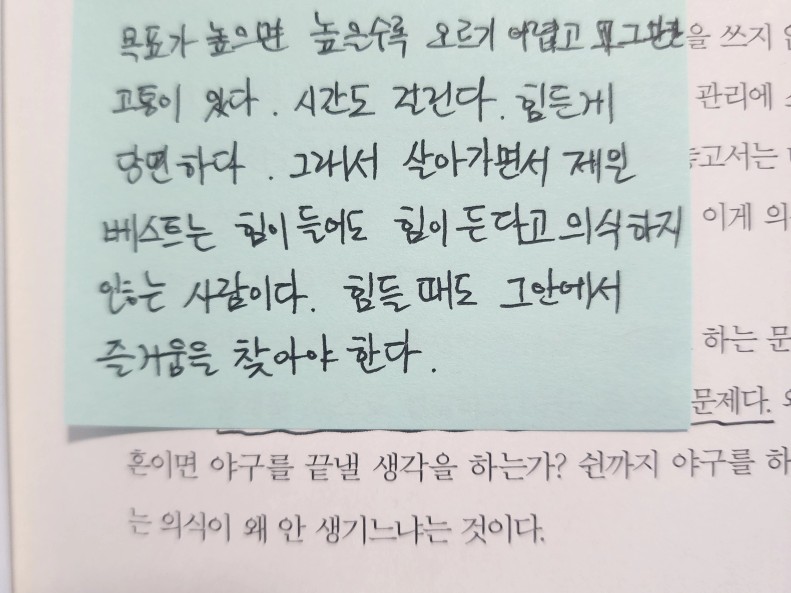 목표가 높으면 높을수록 오르기 어렵고 그만큼
을 쓰지
고통이 있다. 시간도 걸린다. 힘든게
관리에
당연하다. 그래서 살아가면서 제일
고서는
베스트는 힘이 들어도 힘이 든다고 의식하지
이게
않는 사람이다. 힘들 때도 그안에서
하는
즐거움을 찾아야 한다.
문제다.
혼이면 야구를 끝낼 생각을 하는가? 쉰까지 야구를 하
는 의식이 왜 안 생기느냐는 것이다.